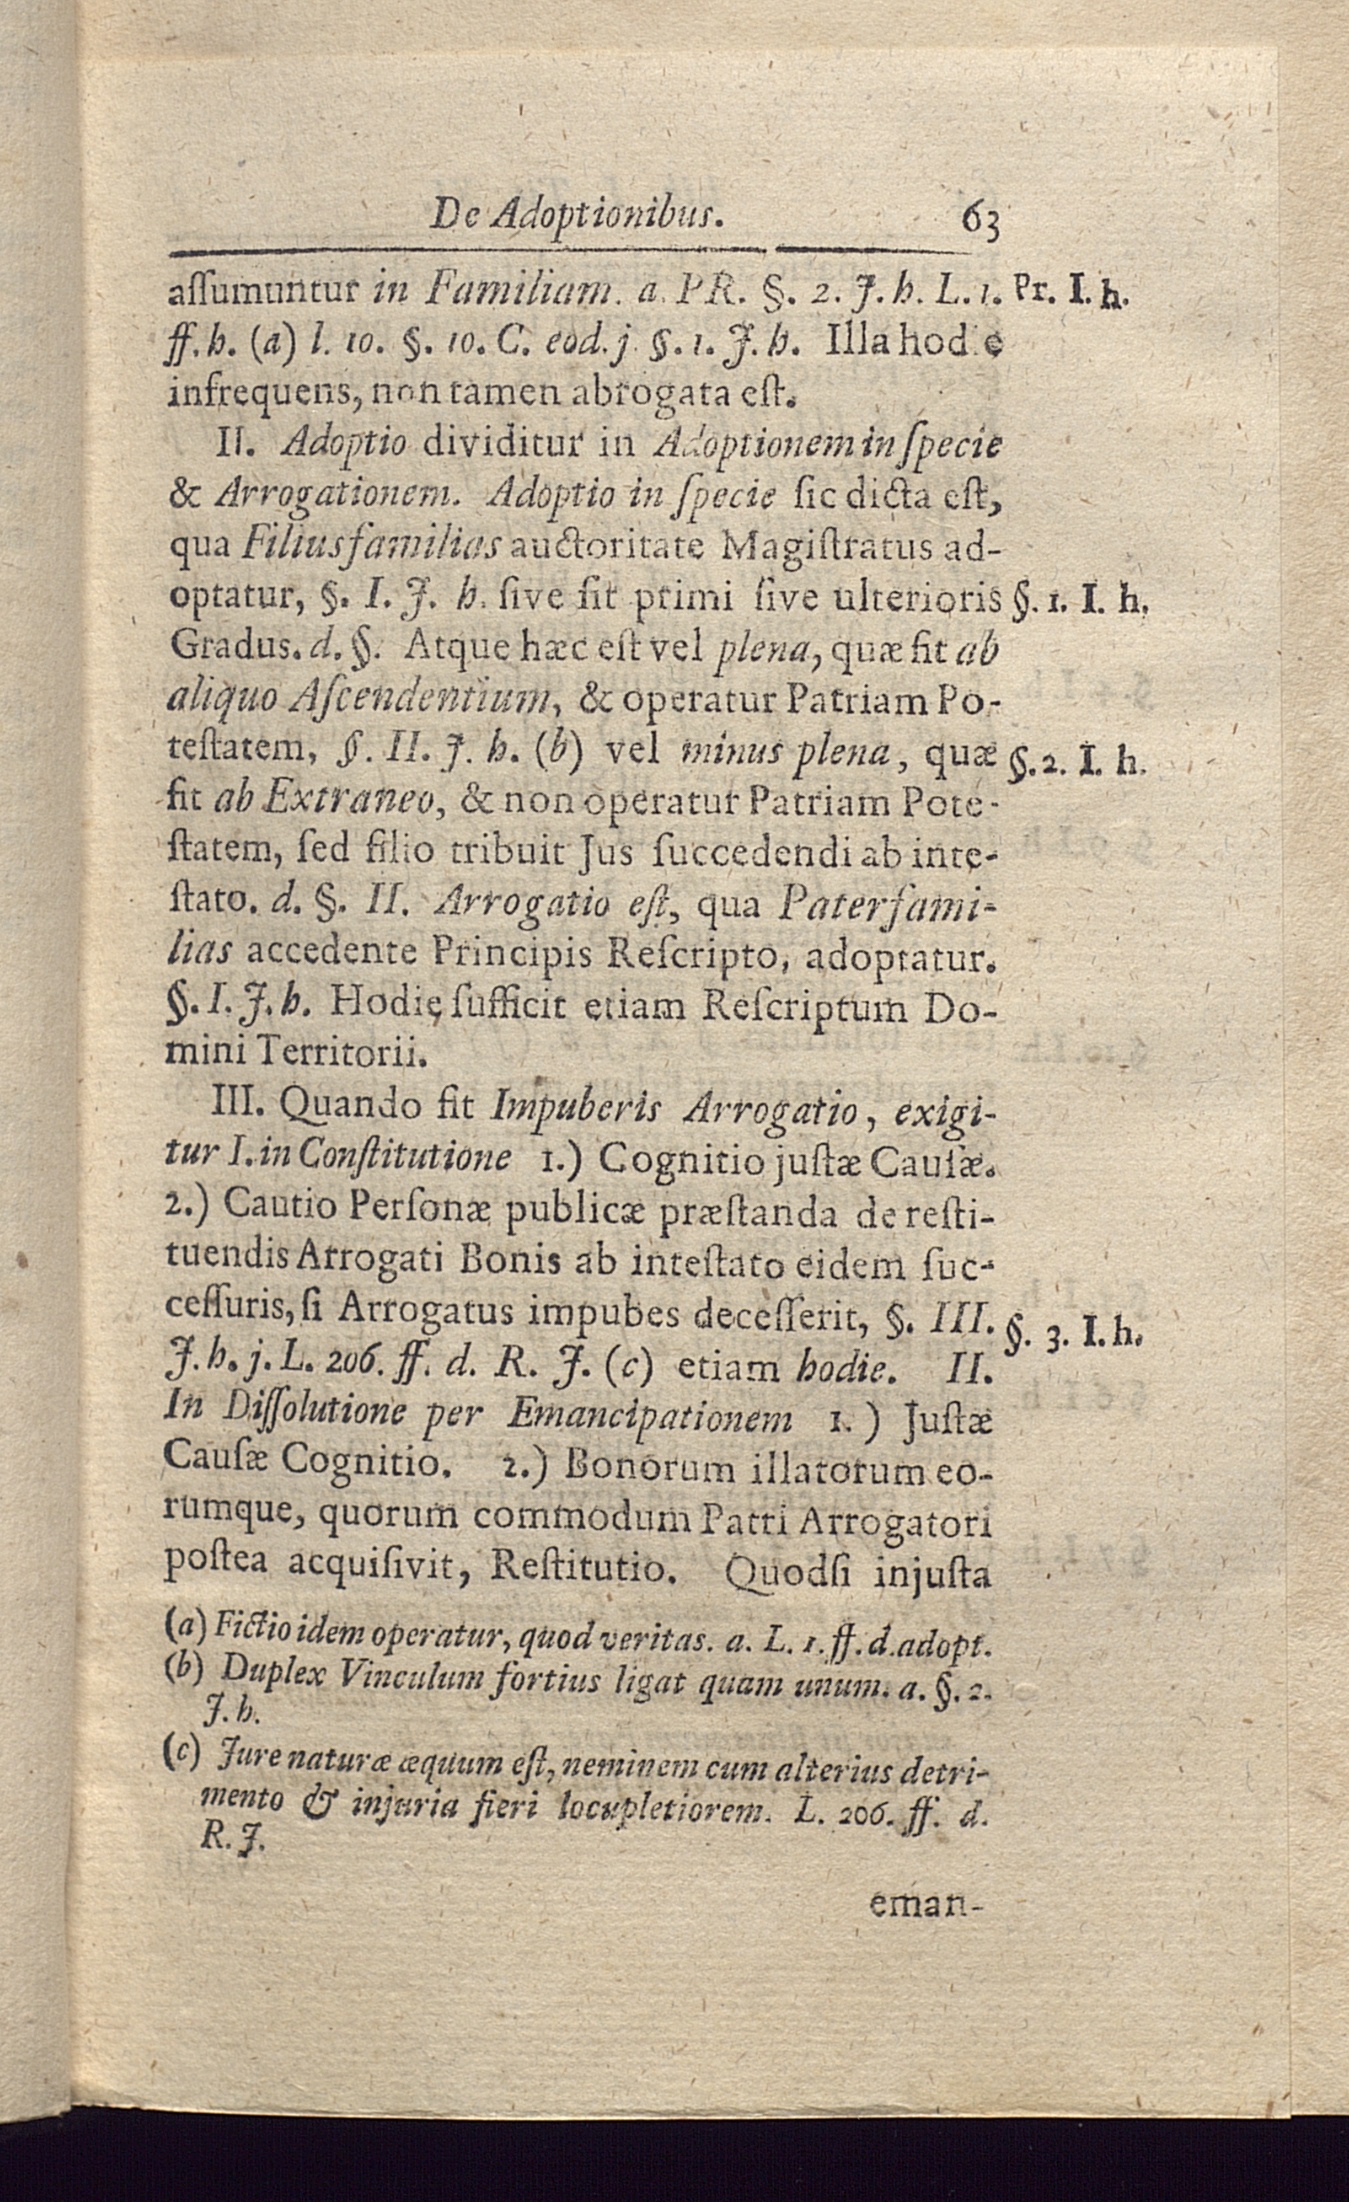 De Adoptionibus. 63
aſſumuntur in Familiam. a. PR. §. 2. J. h. L. 1. Pr. I. h.
ff. h. (a) l. 10. §. 10. C. eod. j. §. 1. J. h. Illa hodie
infrequens, non tamen abrogata eſt.
II. Adoptio dividitur in Adoptionem in ſpecie
& Arrogationem. Adoptio in ſpecie ſic dicta eſt,
qua Filiusfamilias auctoritate Magiſtratus ad-
optatur, §. I. J. h. ſive ſit primi ſive ulterioris §. 1. I. h.
Gradus. d. §. Atque hæc eſt vel plena, quæ fit ab
aliquo Aſcendentium, & operatur Patriam Po-
teſtatem, §. II. J. h. (b) vel minus plena, quæ §. 2. I. h.
fit ab Extraneo, & non operatur Patriam Pote-
ſtatem, ſed filio tribuit Jus ſuccedendi ab inte-
ſtato. d. §. II. Arrogatio eſt, qua Paterfami-
lias accedente Principis Reſcripto, adoptatur.
§. I. J. h. Hodie ſufficit etiam Reſcriptum Do-
mini Territorii.
III. Quando fit Impuberis Arrogatio, exigi-
tur I. in Conſtitutione 1.) Cognitio juſtæ Cauſæ.
2.) Cautio Perſonæ publicæ præſtanda de reſti-
tuendis Arrogati Bonis ab inteſtato eidem ſuc-
ceſſuris, ſi Arrogatus impubes deceſſerit, §. III. §. 3. I. h.
J. h. j. L. 206. ff. d. R. J. (c) etiam hodie. II.
In Diſſolutione per Emancipationem 1.) Juſtæ
Cauſæ Cognitio. 2.) Bonorum illatorum eo-
rumque, quorum commodum Patri Arrogatori
poſtea acquiſivit, Reſtitutio. Quodſi injuſta
(a) Fictio idem operatur, quod veritas. a. L. 1. ff. d. adopt.
(b) Duplex Vinculum fortius ligat quam unum. a. §. 2.
J. h.
(c) Jure naturæ æquum eſt, neminem cum alterius detri-
mento & injuria fieri locupletiorem. L. 206. ff. d.
R. J.
eman-